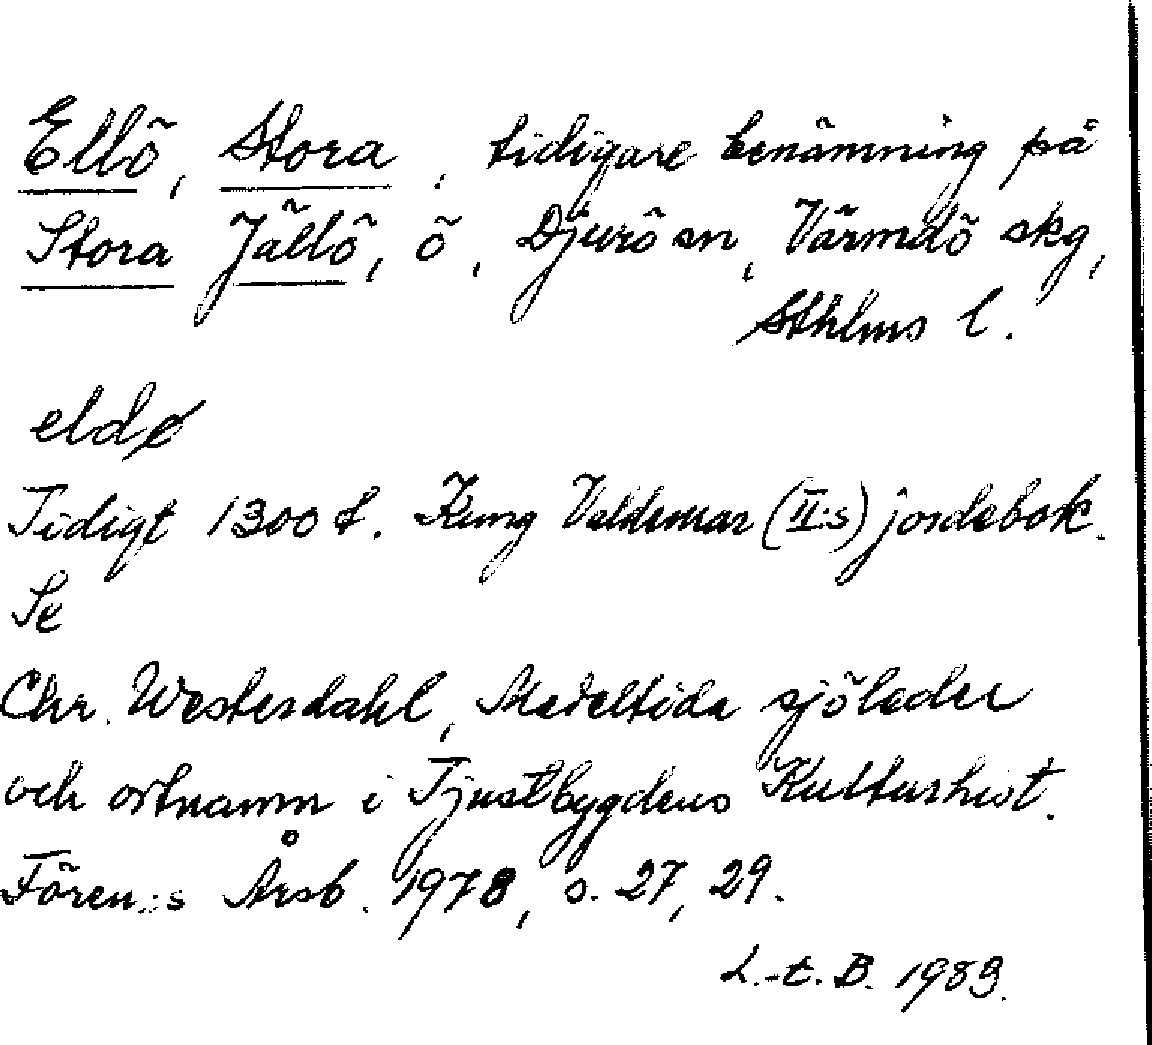 Ellö, Stora, tidigare benämning på
Stora Jällö, ö, Djurö sn, Värmdö skg,
Sthlms l.
eldø
Tidigt 1300 t. Kung Valdemar (II:s) jordebok.
Se
Chr. Westerdahl, Medeltida sjöleder
och ortnamn i Tjustbygdens Kulturhist.
Fören:s Årsb. 1978, s. 27, 29.
L.-t. B. 1983.